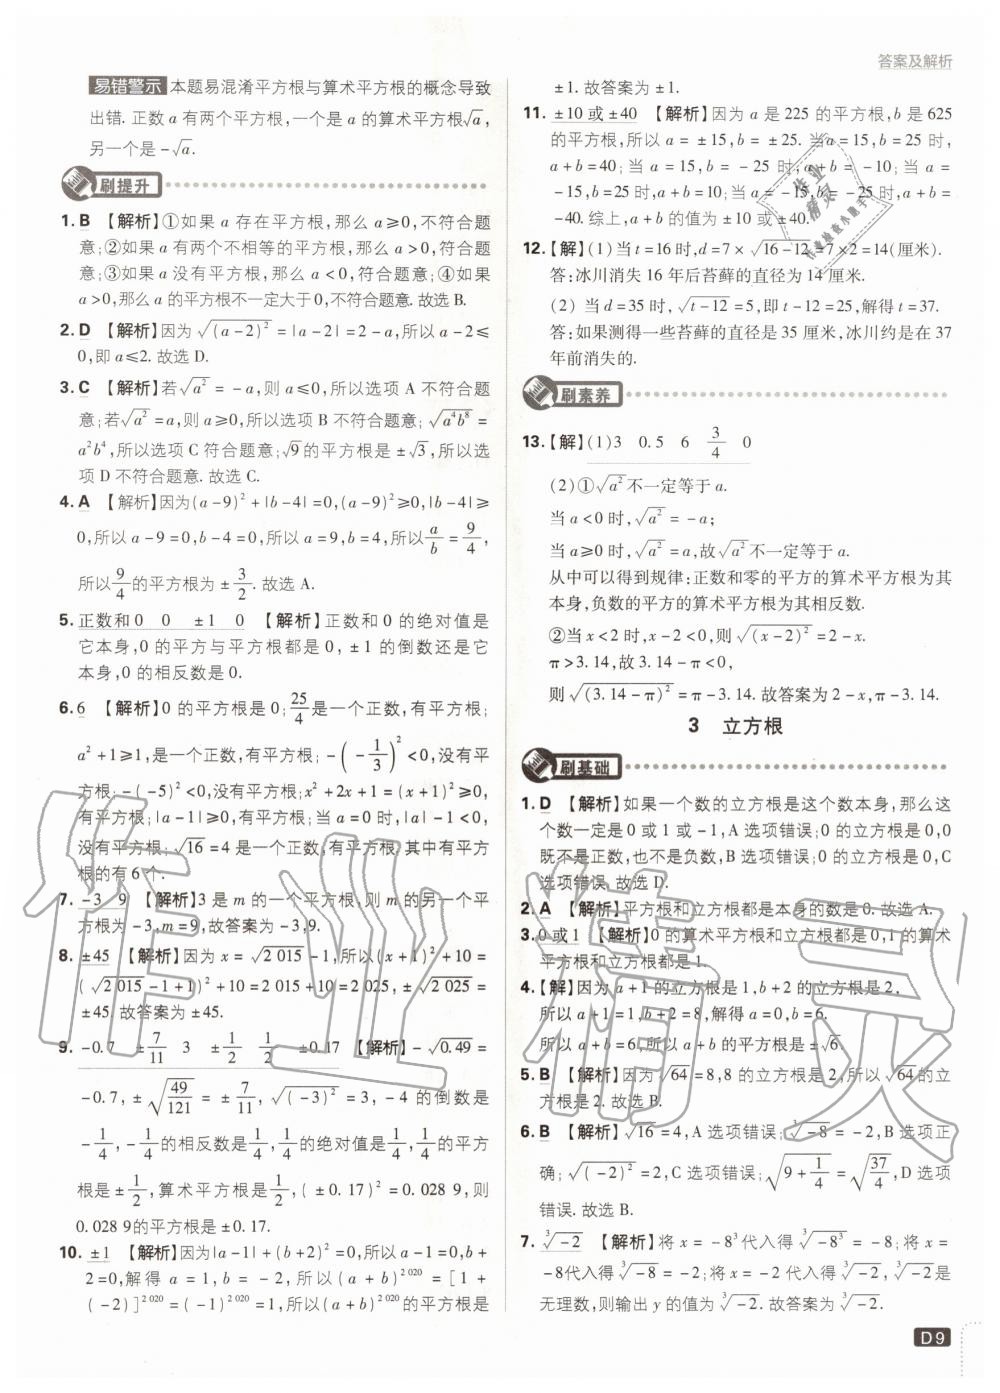 答案及解析
易错警示 本题易混淆平方根与算术平方根的概念导致
出错. 正数 a 有两个平方根,一个是 a 的算术平方根√a,
另一个是 -√a.
刷提升
1. B 【解析】①如果 a 存在平方根,那么 a≥0,不符合题
意;②如果 a 有两个不相等的平方根,那么 a>0,符合题
意;③如果 a 没有平方根,那么 a<0,符合题意;④如果
a>0,那么 a 的平方根不一定大于 0,不符合题意. 故选 B.
2. D 【解析】因为 √(a-2)² = |a-2| = 2-a,所以 a-2≤
0,即 a≤2. 故选 D.
3. C 【解析】若 √a² = -a,则 a≤0,所以选项 A 不符合题
意;若 √a² = a,则 a≥0,所以选项 B 不符合题意; √a⁴b⁸ =
a²b⁴,所以选项 C 符合题意;√9的平方根是 ±√3,所以选
项 D 不符合题意. 故选 C.
4. A 【解析】因为(a-9)²+|b-4|=0,(a-9)²≥0,|b-4|≥
0,所以 a-9=0,b-4=0,所以 a=9,b=4,所以 a/b = 9/4,
所以 9/4 的平方根为 ± 3/2. 故选 A.
5. 正数和 0 0 ±1 0 【解析】正数和 0 的绝对值是
它本身,0 的平方与平方根都是 0, ±1 的倒数还是它
本身,0 的相反数是 0.
6. 6 【解析】0 的平方根是 0; 25/4 是一个正数,有平方根;
a²+1≥1,是一个正数,有平方根; -(-1/3)²<0,没有平
方根; -(-5)²<0,没有平方根;x²+2x+1=(x+1)²≥0,
有平方根;|a-1|≥0,有平方根;当 a=0 时,|a|-1<0,
没有平方根; √16=4 是一个正数,有平方根. 其中有平方
根的有 6 个.
7. -3 9 【解析】3 是 m 的一个平方根,则 m 的另一个平
方根为 -3,m=9,故答案为 -3,9.
8. ±45 【解析】因为 x=√2 015-1,所以(x+1)²+10=
(√2 015-1+1)²+10=2 015+10=2 025, ±√2 025=
±45. 故答案为 ±45.
9. -0.7 ±7/11 3 ±1/2 1/2 ±0.17 【解析】-√0.49=
-0.7, ±√49/121 = ±7/11, √(-3)²=3, -4 的倒数是
-1/4, -1/4的相反数是1/4,1/4的绝对值是1/4,1/4的平方
根是±1/2,算术平方根是1/2, (±0.17)²=0.028 9,则
0.028 9的平方根是 ±0.17.
10. ±1 【解析】因为|a-1|+(b+2)²=0,所以 a-1=0,b+
2=0,解得 a=1,b=-2,所以(a+b)²⁰²⁰=[1+
(-2)]²⁰²⁰=(-1)²⁰²⁰=1,所以(a+b)²⁰²⁰的平方根是
±1. 故答案为 ±1.
11. ±10 或 ±40 【解析】因为 a 是 225 的平方根,b 是 625
的平方根,所以 a=±15,b=±25,所以当 a=15,b=25 时,
a+b=40;当 a=15,b=-25 时,a+b=-10;当 a=
-15,b=25 时,a+b=10;当 a=-15,b=-25 时,a+b=
-40. 综上,a+b 的值为 ±10 或 ±40.
12.【解】(1)当 t=16 时,d=7×√16-12=7×2=14(厘米).
答:冰川消失 16 年后苔藓的直径为 14 厘米.
(2) 当 d=35 时, √t-12=5,即 t-12=25,解得 t=37.
答:如果测得一些苔藓的直径是 35 厘米,冰川约是在 37
年前消失的.
刷素养
13.【解】(1)3 0.5 6 3/4 0
(2)①√a²不一定等于 a.
当 a<0 时,√a²=-a;
当 a≥0 时,√a²=a,故√a²不一定等于 a.
从中可以得到规律:正数和零的平方的算术平方根为其
本身,负数的平方的算术平方根为其相反数.
②当 x<2 时,x-2<0,则 √(x-2)²=2-x.
π>3.14,故 3.14-π<0,
则 √(3.14-π)²=π-3.14. 故答案为 2-x,π-3.14.
3 立方根
刷基础
1. D 【解析】如果一个数的立方根是这个数本身,那么这
个数一定是 0 或 1 或 -1,A 选项错误;0 的立方根是 0,0
既不是正数,也不是负数,B 选项错误;0 的立方根是 0,C
选项错误. 故选 D.
2. A 【解析】平方根和立方根都是本身的数是 0. 故选 A.
3. 0 或 1 【解析】0 的算术平方根和立方根都是 0,1 的算术
平方根和立方根都是 1.
4.【解】因为 a+1 的立方根是 1,b+2 的立方根是 2,
所以 a+1=1,b+2=8,解得 a=0,b=6.
所以 a+b=6,所以 a+b 的平方根是 ±√6.
5. B 【解析】因为√64=8,8 的立方根是 2,所以√64的立
方根是 2. 故选 B.
6. B 【解析】√16=4,A 选项错误; ³√-8=-2,B 选项正
确;√(-2)²=2,C 选项错误;√9+1/4=√37/4,D 选项
错误. 故选 B.
7. ³√-2 【解析】将 x=-8³代入得 ³√-8³=-8;将 x=
-8代入得 ³√-8=-2;将 x=-2 代入得 ³√-2, ³√-2是
无理数,则输出 y 的值为 ³√-2. 故答案为 ³√-2.
D9
作业精灵